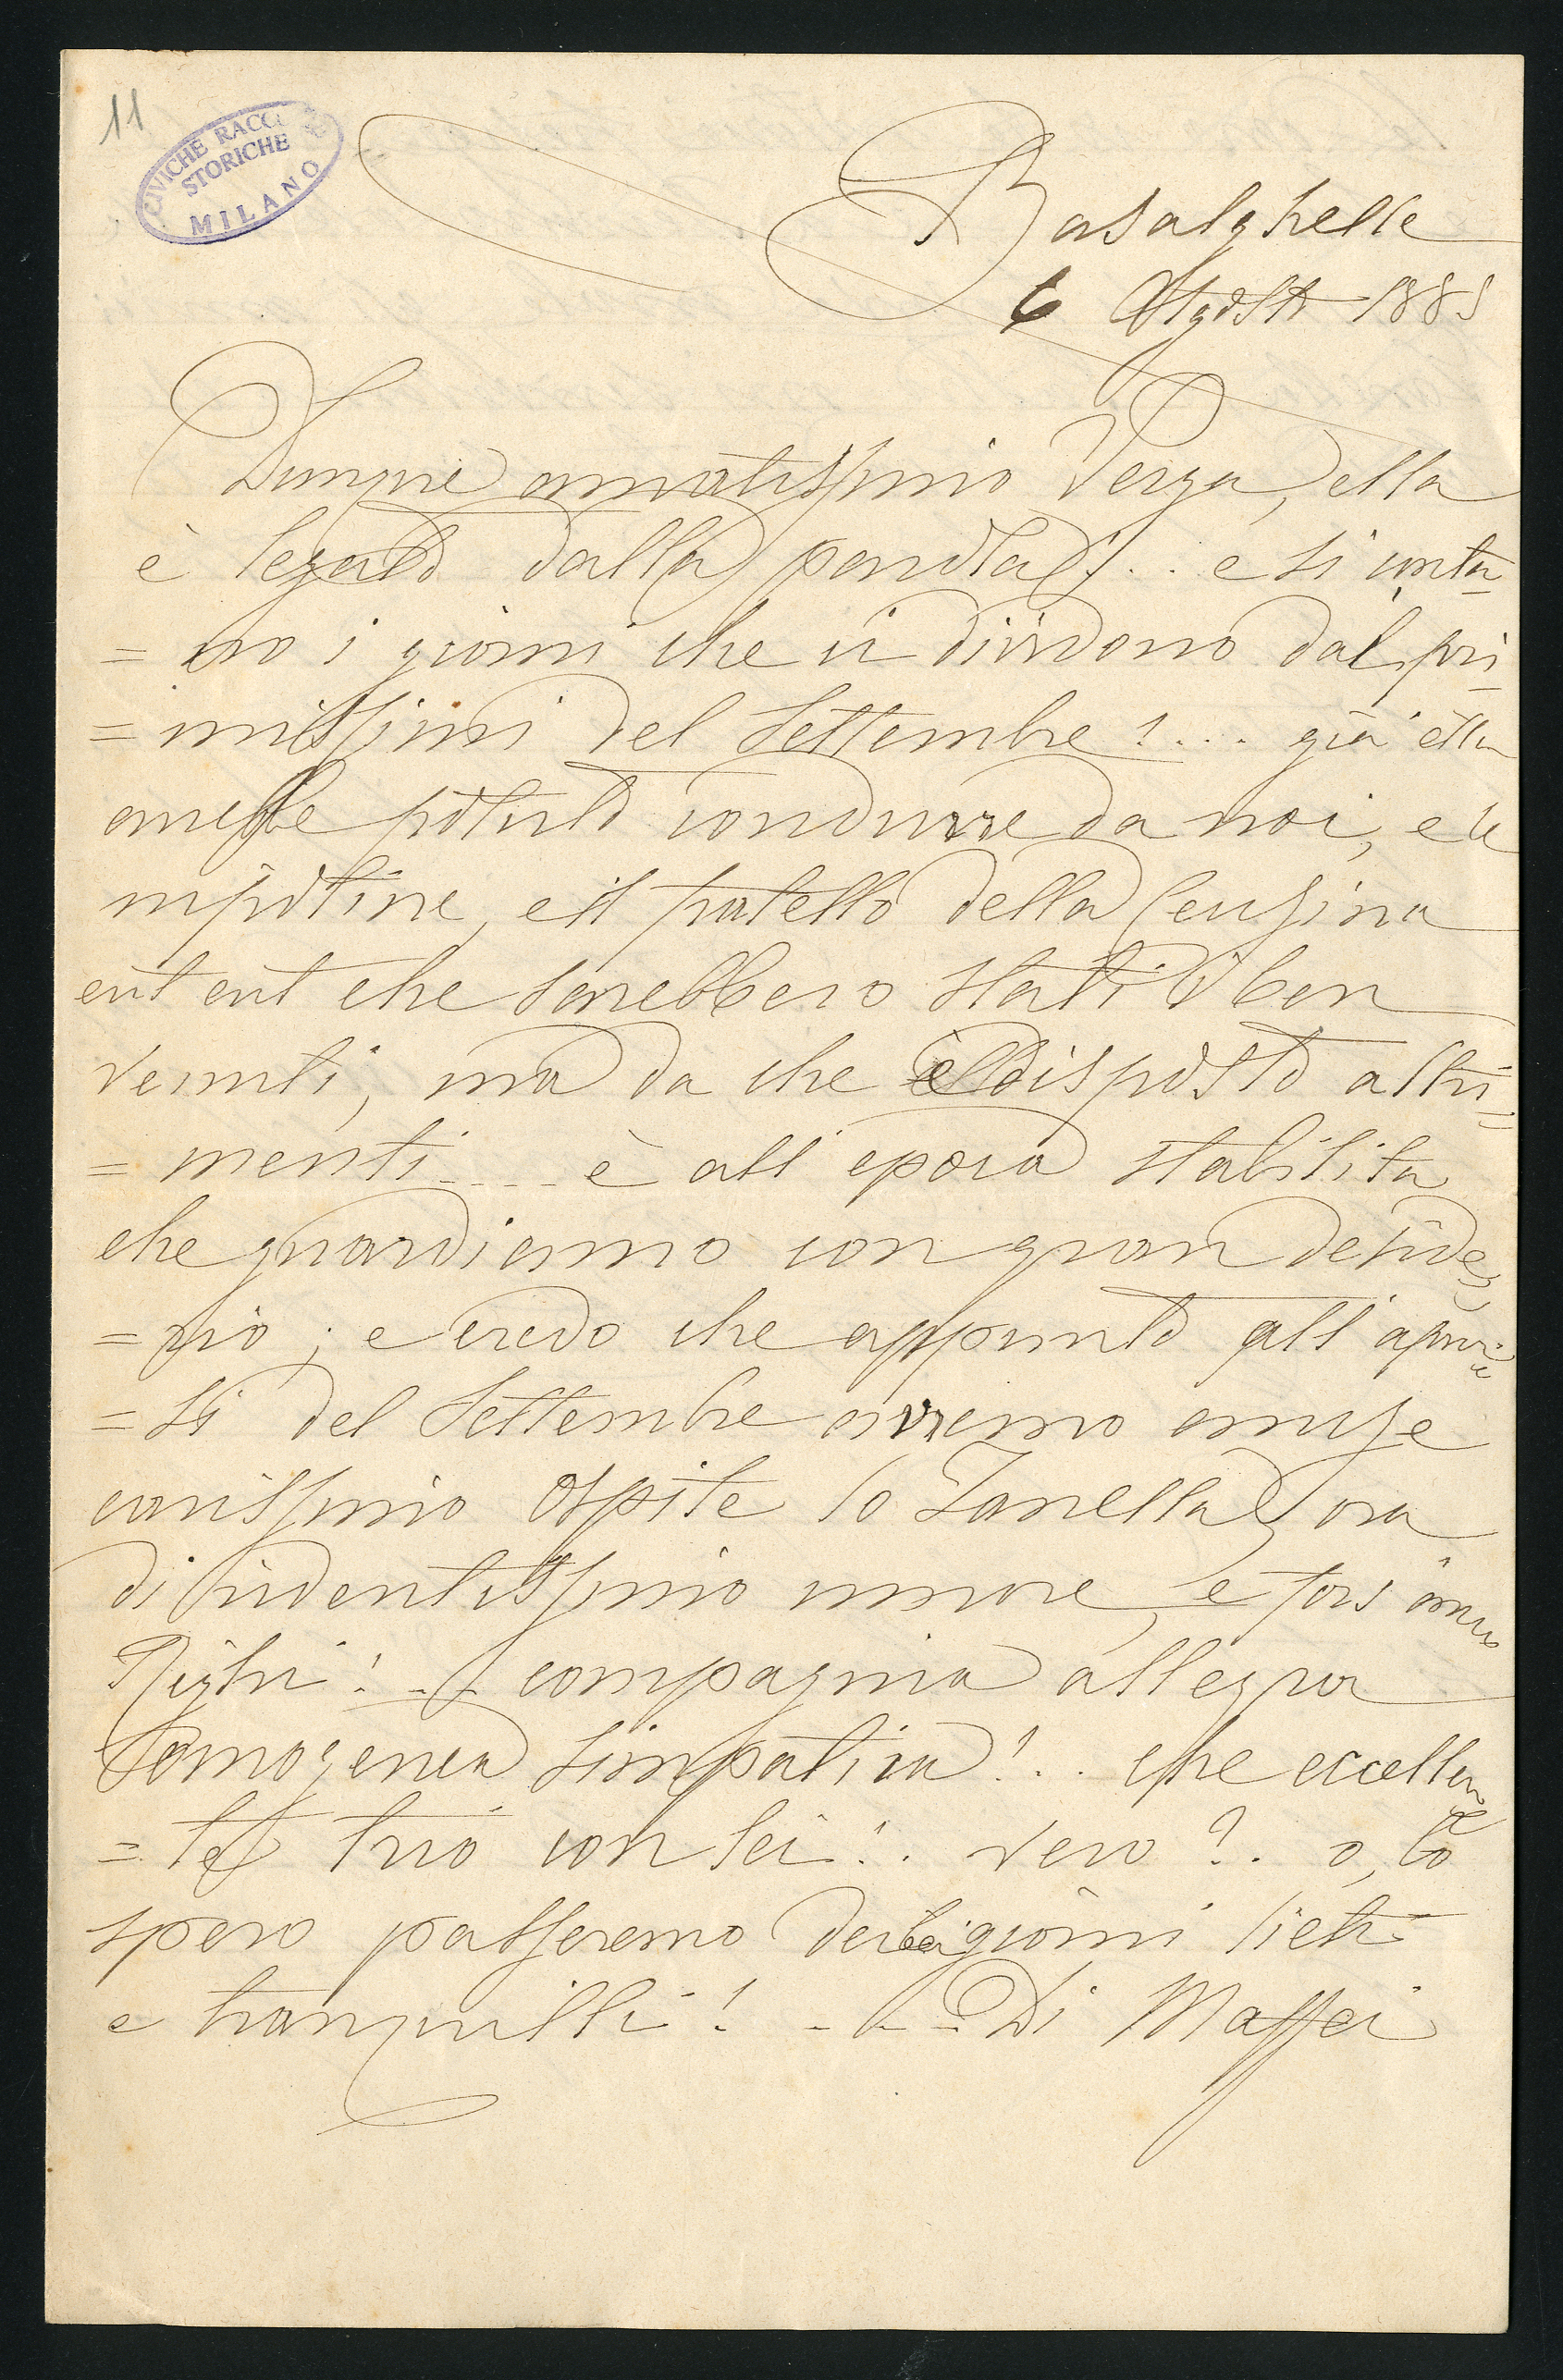 11
CIVICHE RACCOLTE
STORICHE
MILANO
Basalghelle
6 Agosto 1885
Dunque amatissimo Verga, ella
è legato dalla parola!.. e si conta
= no i giorni che ci dividono dal pri
= missimi del Settembre!... già ella
avesse potuto condurre da noi, e le
nipotine, e il fratello della Cugina
ect ect che sarebbero stati i ben
venuti, ma da che è disposto altri=
= menti.... è all'epoca stabilita
che guardiamo con gran deside=
= rio; e credo che appunto all'apri=
= si del Settembre avremo anche
carissimo ospite lo Zanella, ora
di ridentissimo umore, e fors' anco
Righi!... compagnia allegra
omogenea simpatica!.. che eccellen=
= te trio con lei!. vero?. o, lo
spero passeremo dei bei giorni lieti
e tranquilli! - - - Di Maffei